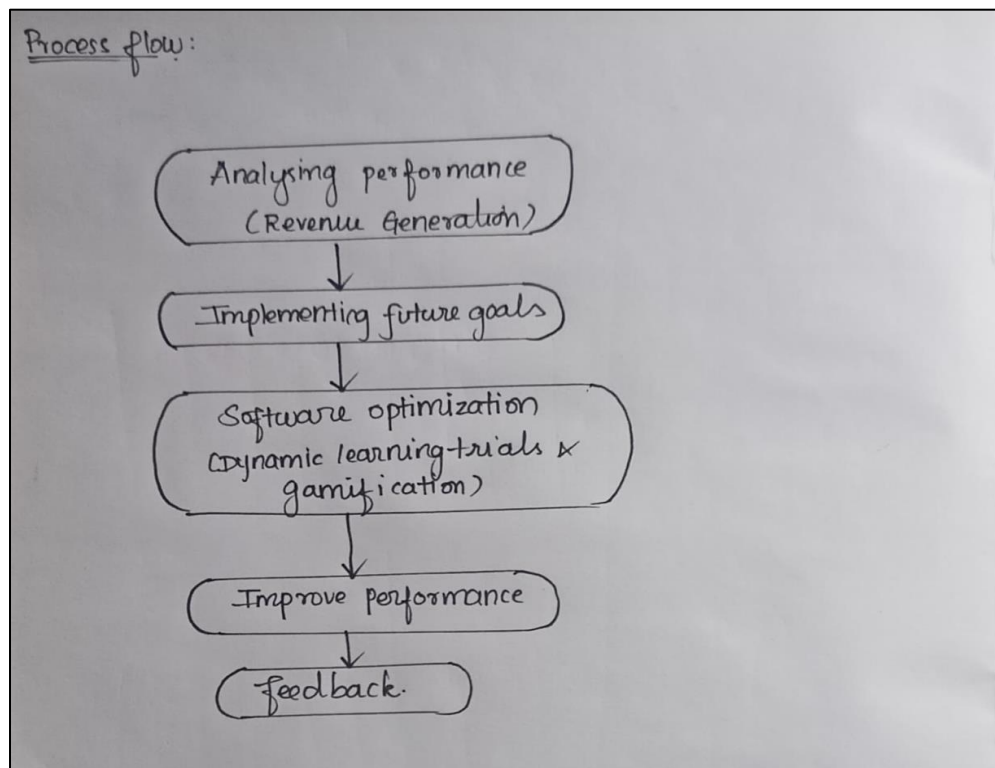 Process flow:
Analysing performance
(Revenue Generation)
Implementing future goals
Software optimization
(Dynamic learning-trials &
gamification)
Improve performance
feedback.